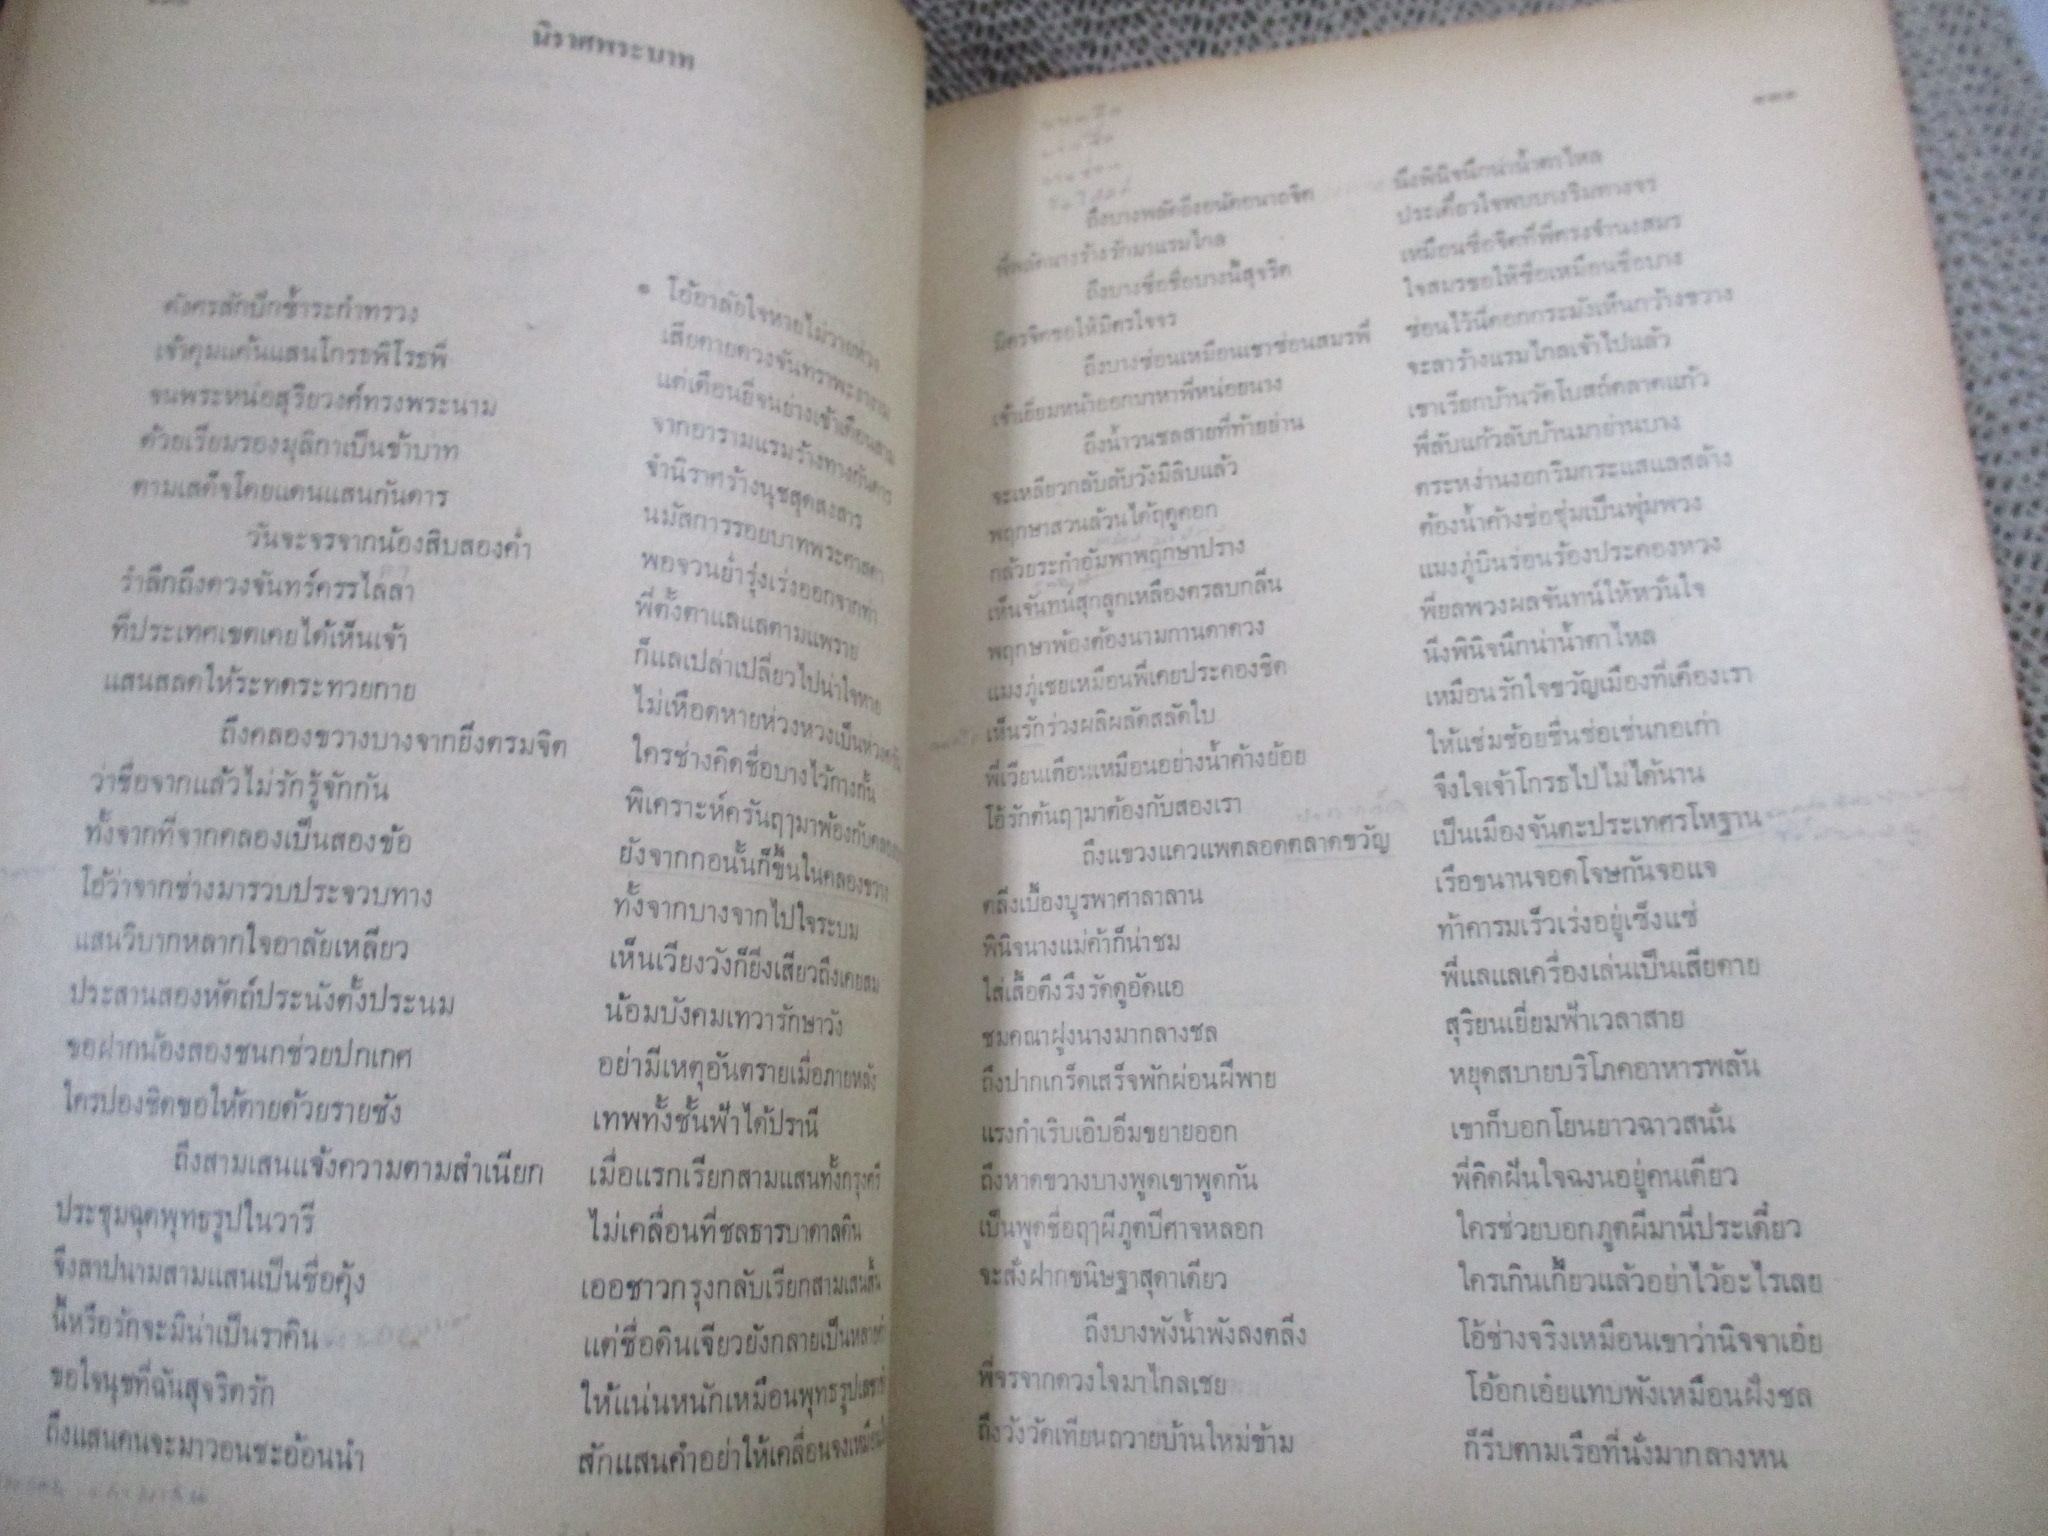 นิราศพระบาท
๏ โอ้อาลัยใจหายไม่วายห่วง
ดังศรสักปักช้ำระกำทรวง
เสียดายดวงจันทราพะงางาม
เจ้าคุมแค้นแสนโกรธพิโรธพี่
แต่เดือนยี่จนย่างเข้าเดือนสาม
จนพระหน่อสุริยวงศ์ทรงพระนาม
จากอารามแรมร้างทางกันดาร
ด้วยเรียมรองมุลิกาเป็นข้าบาท
จำนิราศร้างนุชสุดสงสาร
ตามเสด็จโดยแดนแสนกันดาร
นมัสการรอยบาทพระศาสดา
วันจะจรจากน้องสิบสองค่ำ
พอจวนย่ำรุ่งเร่งออกจากท่า
รำลึกถึงดวงจันทร์ครรไลลา
พี่ตั้งตาแลแลตามแพราย
ที่ประเทศเขตเคยได้เห็นเจ้า
ก็แลเปล่าเปลี่ยวไปน่าใจหาย
แสนสลดให้ระทดระทวยกาย
ไม่เหือดหายห่วงหวงเป็นห่วง
ถึงคลองขวางบางจากยิ่งตรมจิต
ใครช่างคิดชื่อบางไว้กางกั้น
ว่าชื่อจากแล้วไม่รักรู้จักกัน
พิเคราะห์ครันฤๅมาพ้องกับคลอง
ทั้งจากที่จากคลองเป็นสองข้อ
ยังจากกอนั้นก็ขึ้นในคลองขวาง
โอ้ว่าจากช่างมารวบประจวบทาง
ทั้งจากบางจากไปใจระบม
แสนวิบากหลากใจอาลัยเหลียว
เห็นเวียงวังก็ยิ่งเสียวถึงเคยสม
ประสานสองหัตถ์ประนังตั้งประนม
น้อมบังคมเทวารักษาวัง
ขอฝากน้องสองชนกช่วยปกเกศ
อย่ามีเหตุอันตรายเมื่อภายหลัง
ใครปองชิดขอให้ตายด้วยรายชัง
เทพทั้งชั้นฟ้าได้ปรานี
ถึงสามเสนแจ้งความตามสำเนียก
เมื่อแรกเรียกสามแสนทั้งกรุงศรี
ประชุมฉุดพุทธรูปในวารี
ไม่เคลื่อนที่ชลธารบาดาลดิน
จึงสาปนามสามแสนเป็นชื่อคุ้ง
เออชาวกรุงกลับเรียกสามเสนสิ้น
นี้หรือรักจะมิน่าเป็นราคิน
แต่ชื่อดินเจียวยังกลายเป็นหลาย
ขอใจนุชที่ฉันสุจริตรัก
ให้แน่นหนักเหมือนพุทธรูป
ถึงแสนคนจะมาวอนชะอ้อนนำ
สักแสนคำอย่าให้เคลื่อนจง
๑๓๑
ถึงบางพลัดยิ่งอนัดอนาถจิต
นิ่งพินิจนึกน่าน้ำตาไหล
พี่พลัดนางร้างรักมาแรมไกล
ประเดี๋ยวใจพบบางริมทางจร
ถึงบางซื่อชื่อบางนี้สุจริต
เหมือนซื่อจิตที่พี่ตรงจำนงสมร
มิตรจิตขอให้มิตรใจจร
ใจสมรขอให้ซื่อเหมือนชื่อบาง
ถึงบางซ่อนเหมือนเขาซ่อนสมรพี่
ซ่อนไว้นี่ดอกกระมังเห็นกว้างขวาง
เจ้าเยี่ยมหน้าออกมาหาพี่หน่อยนาง
จะลาร้างแรมไกลเจ้าไปแล้ว
ถึงน้ำวนชลสายที่ท้ายย่าน
เขาเรียกบ้านวัดโบสถ์ตลาดแก้ว
จะเหลียวกลับลับวังมิลิบแล้ว
พี่ลับแก้วลับบ้านมาย่านบาง
พฤกษาสวนล้วนได้ฤดูดอก
ตระหง่านงอกริมกระแสแลสล้าง
กล้วยระกำอัมพาพฤกษาปราง
ต้องน้ำค้างช่อชุ่มเป็นพุ่มพวง
เห็นจันทน์สุกลูกเหลืองตรลบกลิ่น
แมงภู่บินร่อนร้องประคองหวง
พฤกษาพ้องต้องนามกานดาดวง
พี่ยลพวงผลจันทน์ให้หวั่นใจ
แมงภู่เชยเหมือนพี่เคยประคองชิด
นิ่งพินิจนึกน่าน้ำตาไหล
เห็นรักร่วงผลิผลัดสลัดใบ
เหมือนรักใจขวัญเมืองที่เคืองเรา
พี่เวียนเตือนเหมือนอย่างน้ำค้างย้อย
ให้แช่มช้อยชื่นช่อเช่นกอเก่า
โอ้รักต้นฤๅมาต้องกับสองเรา
จึงใจเจ้าโกรธไปไม่ได้นาน
ถึงแขวงแควแพตลอดตลาดขวัญ
เป็นเมืองจันตะประเทศรโหฐาน
ตลิ่งเบื้องบูรพาศาลาลาน
เรือขนานจอดโจษกันจอแจ
พินิจนางแม่ค้าก็น่าชม
ท้าคารมเร็วเร่งอยู่เซ็งแซ่
ใส่เสื้อตึงรึงรัดดูอัดแอ
พี่แลแลเครื่องเล่นเป็นเสียดาย
ชมคณาฝูงนางมากลางชล
สุริยนเยี่ยมฟ้าเวลาสาย
ถึงปากเกร็ดเสร็จพักผ่อนฝีพาย
หยุดสบายบริโภคอาหารพลัน
แรงกำเริบเอิบอิ่มขยายออก
เขาก็บอกโยนยาวฉาวสนั่น
ถึงหาดขวางบางพูดเขาพูดกัน
พี่คิดฝันใจฉงนอยู่คนเดียว
เป็นพูดชื่อฤๅผีภูตปีศาจหลอก
ใครช่วยบอกภูตผีมานี่ประเดี๋ยว
จะสั่งฝากขนิษฐาสุดาเดียว
ใครเกินเกี้ยวแล้วอย่าไว้อะไรเลย
ถึงบางพังน้ำพังลงตลิ่ง
โอ้ช่างจริงเหมือนเขาว่านิจจาเอ๋ย
พี่จรจากดวงใจมาไกลเชย
โอ้อกเอ๋ยแทบพังเหมือนฝั่งชล
ถึงวังวัดเทียนถวายบ้านใหม่ข้าม
ก็รีบตามเรือที่นั่งมากลางหน